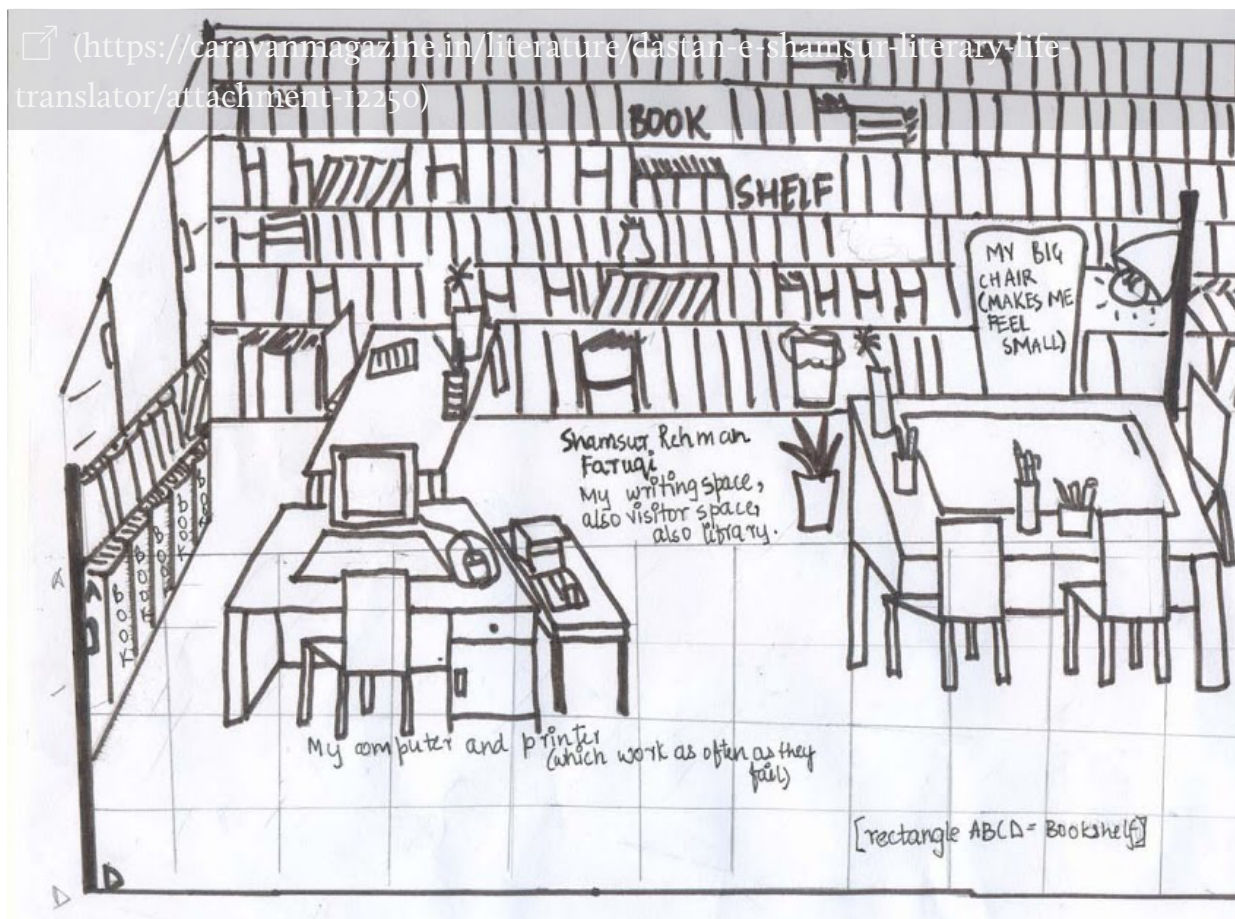 (https://caravanmagazine.in/literature/dastan-e-shamsur-literary-life-
translator/attachment-12250)
BOOK
SHELF
MY BIG
CHAIR
(MAKES ME
FEEL
SMALL)
Shamsur Rehman
Faruqi
My writing space,
also visitor space,
also library.
BOOK
BOOK
BOOK
BOOK
A
My computer and printer
(which work as often as they
fail)
[rectangle ABCD = Bookshelf]
D
D